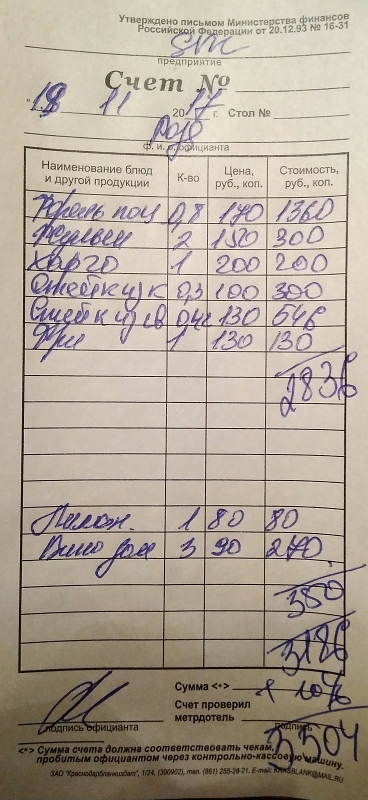 Утверждено письмом Министерства финансов
Российской Федерации от 20.12.93 № 16-31
предприятие
Счет №
" 18 11 2017 г. Стол №
ф. и. о. официанта
Наименование блюд и другой продукции К-во Цена, руб., коп. Стоимость, руб., коп.
0,8 170 1360
2 150 300
Харчо 1 200 200
Стейк из к 0,3 100 300
Стейк из св 0,42 130 546
Фри 1 130 130
2836
Лимон. 1 80 80
Вино дом 3 90 270
350
3186
Сумма <*> + 10%
Счет проверил
метрдотель
подпись официанта подпись
3504
<*> Сумма счета должна соответствовать чекам,
пробитым официантом через контрольно-кассовую машину.
ЗАО "Краснодарбланкиздат", 1/24, (300902), тел. (861) 255-26-21. E-mail: KRASBLANK@MAIL.RU